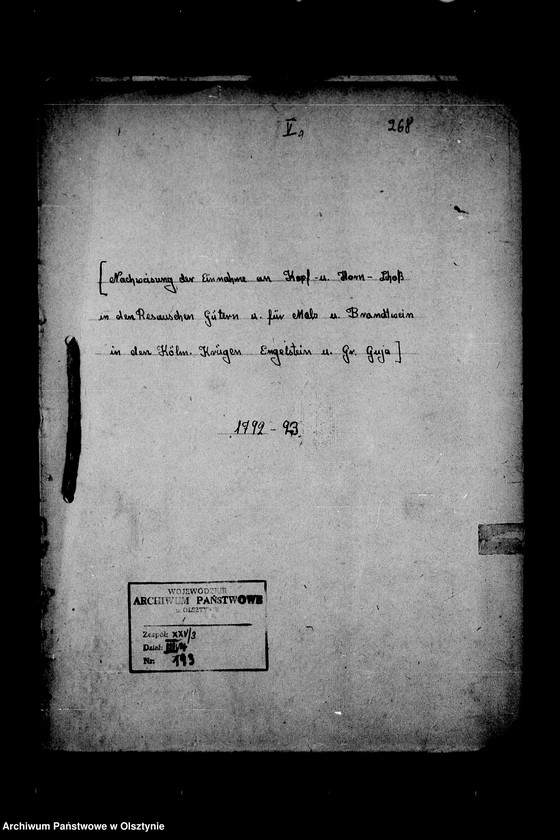 V a
268
[Nachweisung der Einnahme an Kopf- u. Horn-Schoß
in den Resauschen Gütern u. für Malz u. Brandtwein
in den Kölm. Krügen Engelstein u. Gr. Guja]
1792-93
WOJEWÓDZKIE
ARCHIWUM PAŃSTWOWE
w OLSZTYNIE
Zespół: XXV/3
Dział:
Nr: 193
Archiwum Państwowe w Olsztynie